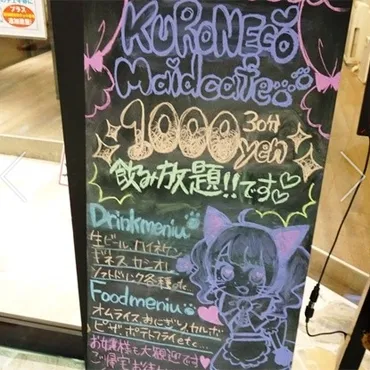 プラス
KURONECO
Maidcafe
1000yen 30分
飲み放題!!です♡♡
Drinkmeniu
生ビール、ハイボール
ギネス カシオレ
ソフトドリンク各種etc...
Foodmeniu
オムライス おにぎり、カルボ
ピザ、ポテトフライ etc...
お嬢様も大歓迎です♡
ご帰宅お待ち